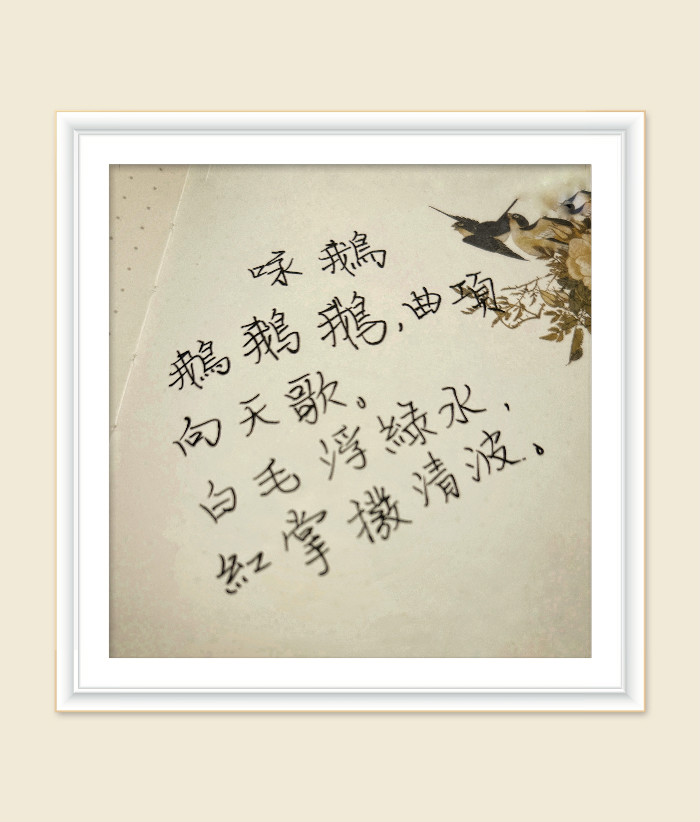 咏鵝
鵝鵝鵝,曲項
向天歌。
白毛浮綠水,
紅掌撥清波。